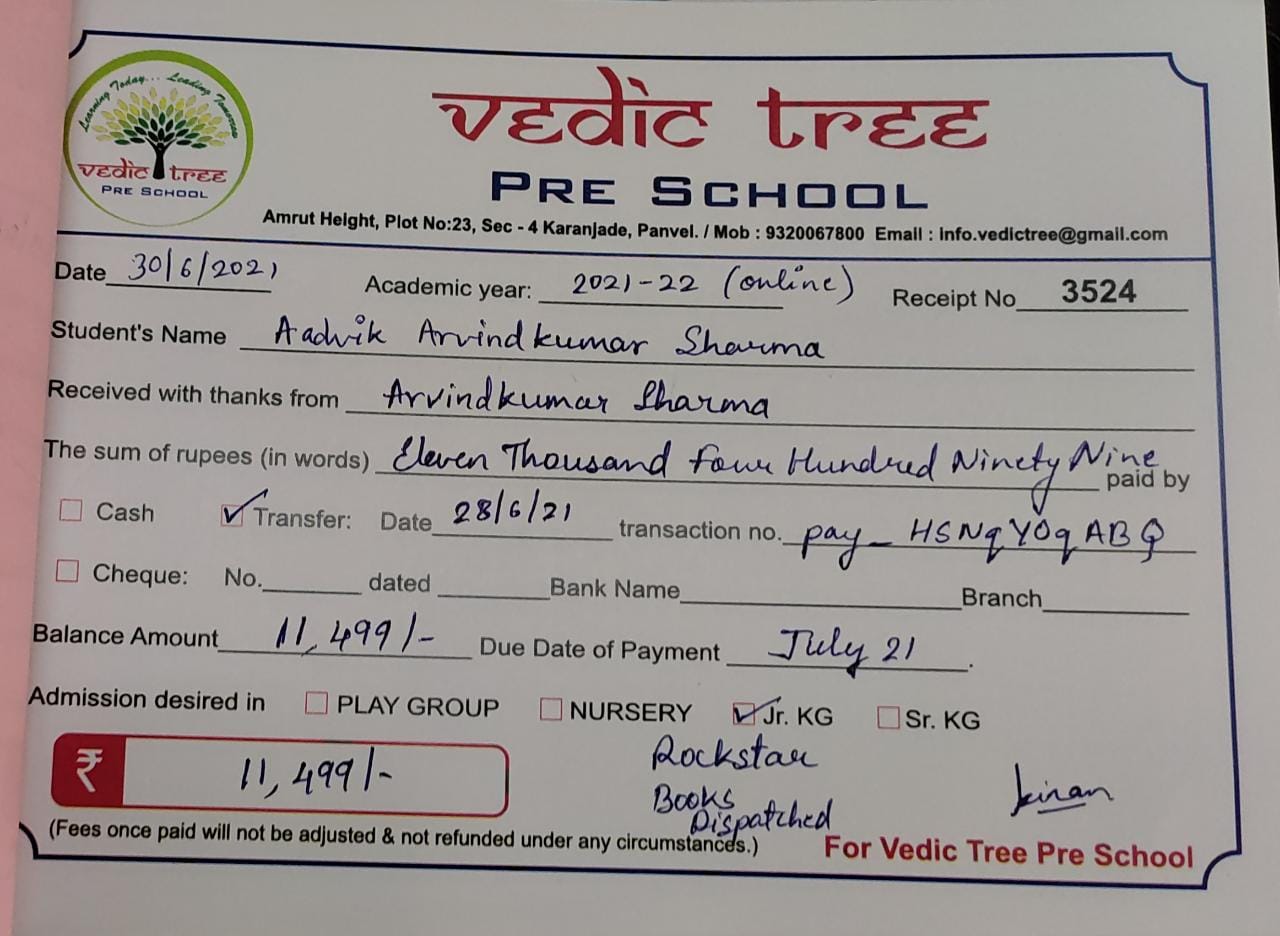 Learning Today... Leading Tomorrow
vedic tree
PRE SCHOOL
vedic tree
PRE SCHOOL
Amrut Height, Plot No:23, Sec - 4 Karanjade, Panvel. / Mob : 9320067800 Email : Info.vedictree@gmail.com
Date 30/6/2021 Academic year: 2021-22 (online) Receipt No 3524
Student's Name Aadvik Arvindkumar Sharma
Received with thanks from Arvindkumar Sharma
The sum of rupees (in words) Eleven Thousand Four Hundred Ninety Nine paid by
Cash Transfer: Date 28/6/21 transaction no. pay_HSNqYOqABQ
Cheque: No. dated Bank Name Branch
Balance Amount 11,499/- Due Date of Payment July 21.
Admission desired in PLAY GROUP NURSERY Jr. KG Sr. KG
₹ 11,499/-
Rockstar
Books
Dispatched
kiran
(Fees once paid will not be adjusted & not refunded under any circumstances.)
For Vedic Tree Pre School